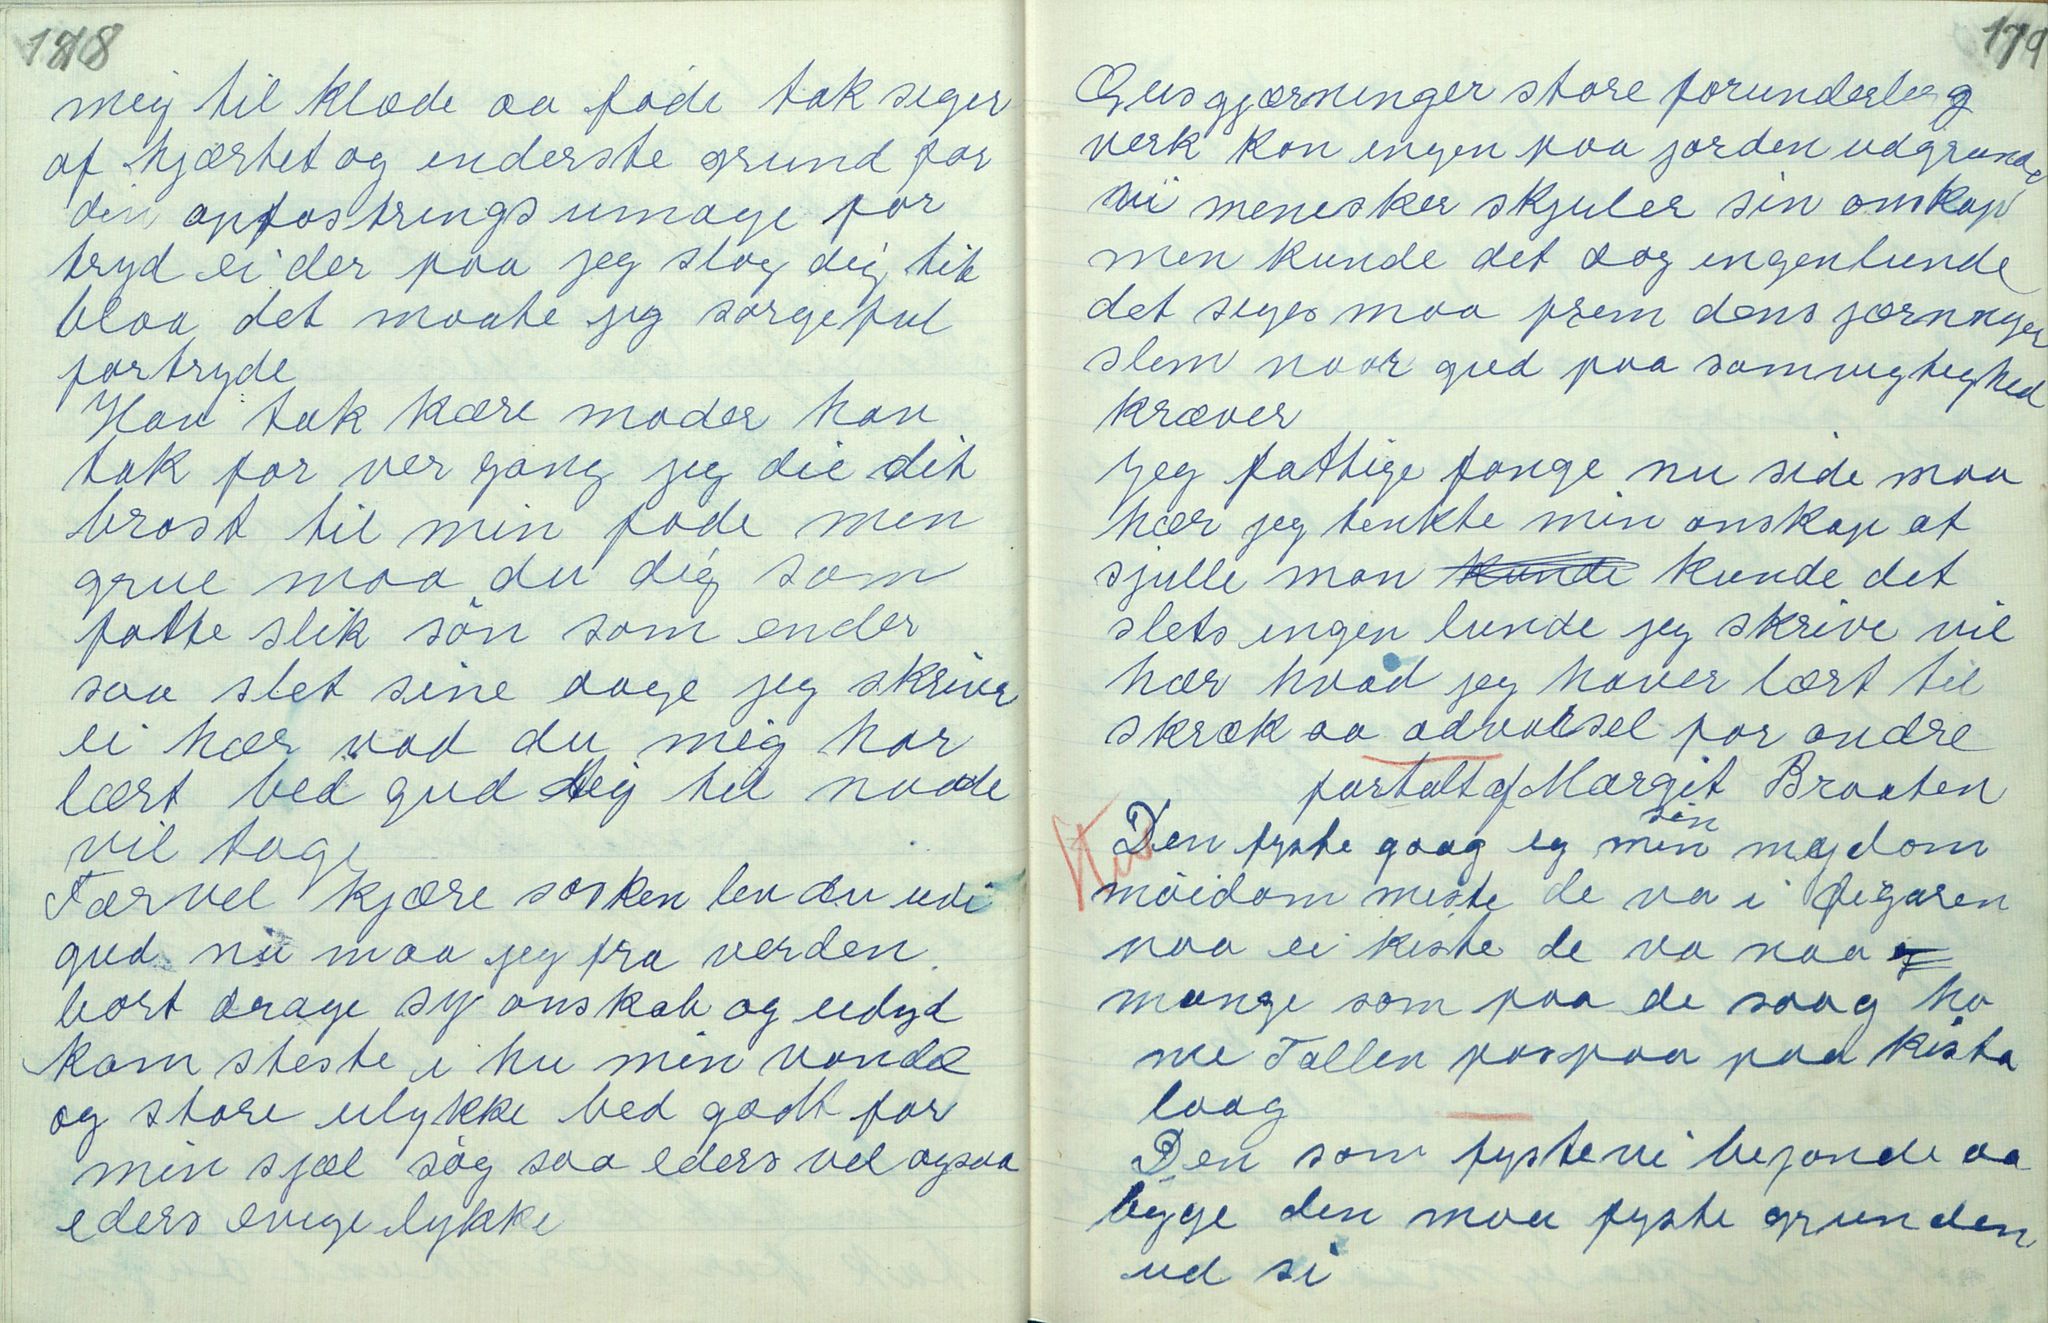 178
mig til klæde aa føde tak siger
af hjærtet og enderste grund for
din opfostrings umage for
tryd ei der paa jeg slog dig tit
blaa det maate jeg sørgeful
fortryde
Hav tak kære moder hav
tak for ver gang jeg die dit
brøst til min føde men
grue maa du dig som
fotte slik sön som ender
saa slet sine dage jeg skriver
ei hær vad du mig har
lært bed gud dig til naade
vil tage
Farvel kjære søsken lev du udi
gud nu maa jeg fra verden
bort drage sy onskab og udyd
kom steste i hu min vonde
og store ulykke bed godt for
min sjæl søg saa eders vel ogsaa
eders evige lykke
179
Gus gjærninger store forunderleg
verk kan ingen paa jorden udgrunde
vi menesker skjuler sin onskap
men kunde det dog ingenlunde
det siges maa frem dens jærninger
slem naar gud paa samvigtighed
kræver
Jeg fattige fange nu side maa
hær jeg tenkte min onskap at
sjulle man kunde kunde det
slets ingen lunde jeg skrive vil
hær hvad jeg haver lært til
skræk aa advalsel for andre
fortalt af Margit Braaten
Stev
Den fyste gaag eg min sin mydom
möidom miste de va i figaren
naa ei kiste de va naa
mange som paa de saag ho
me Tallen paa kista
laag
Den som fyste vi bejonde aa
bygge den maa fyste grunden
ud si